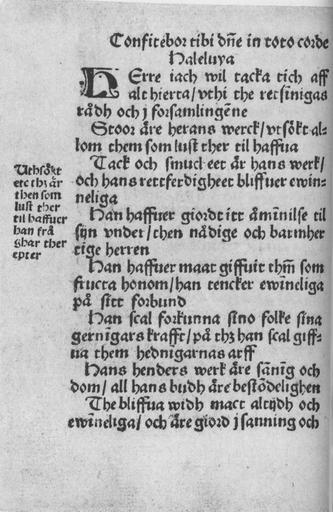 Confitebor tibi dn̄e in toto corde
Haleluya
HErre iach wil tacka tich aff
alt hierta/ vthi the retfinigas
rådh och j forsamlingēne
Stoor äre herans werck/ vtsökt al-
lom them som lust ther til haffua
Tack och smuck eet är hans werk/
och hans rettferdigheet bliffuer ewin-
neliga
Han haffuer giordt itt āminilse til
syn vnder/ then nådige och barmher
tige herren
Han haffuer maat giffuit thm̄ som
fructa honom/ han tencker ewīneliga
på sitt forbund
Han scal forkunna sino folke sina
gernīgars krafft/ på thz han scal giff-
ua them hednigarnas arff
Hans henders werk äre sānīg och
dom/ all hans budh äre bestōdelighen
The bliffua widh mact altijdh och
ewīneliga/ och äre giord j sanning och
Uthsökt
etc thz är
then som
lust ther
til haffuer
han frå
ghar ther
epter